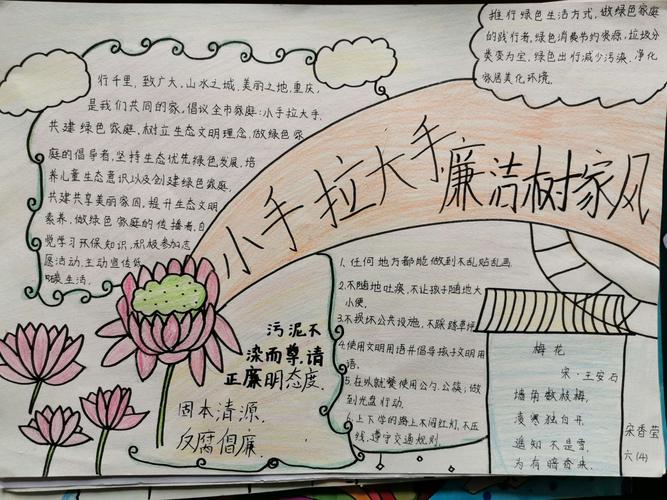 行千里，致广大，山水之城，美丽之地，重庆，
是我们共同的家，倡议全市家庭：小手拉大手，
共建绿色家庭，树立生态文明理念，做绿色家
庭的倡导者，坚持生态优先绿色发展，培
养儿童生态意识以及创建绿色家庭，
共建共享美丽家园，提升生态文明
素养，做绿色家庭的传播者，自
觉学习环保知识，积极参加志
愿活动，主动宣传低
碳生活。
推行绿色生活方式，做绿色家庭
的践行者，绿色消费节约资源，垃圾分
类变为宝，绿色出行减少污染，净化
家居美化环境。
小手拉大手 廉洁树家风
污泥不
染而尊，请
正廉明态度。
固本清源，
反腐倡廉
1. 任何地方都能做到不乱贴乱画.
2. 不随地吐痰，不让孩子随地大
小便.
3. 不损坏公共设施，不踩踏草坪
4. 使用文明用语并倡导孩子文明用
语.
5. 在外就餐使用公勺、公筷；做
到光盘行动.
6. 上下学的路上不闯红灯，不压
线，遵守交通规则.
梅花
宋·王安石
墙角数枝梅，
凌寒独自开，
遥知不是雪，
为有暗香来.
宋香莹
六(4)